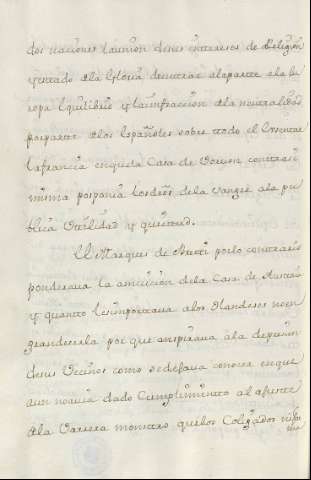 dos naciones la union de sus intereses de Religion
y estado a la Gloria de entrar a la parte a la Eu
ropa Equilibrio y la infraccion de la neutralidad
por parte de los Españoles sobre todo el
la francia en que la Casa de contra si
misma posponia los de la sangre a la pu
blica Utilidad y quietud.
El Marques de por lo contrario
ponderava la ambicion de la Casa de Austria
y quanto les importava a los Olandeses no en
grandecerla por que aspirava a la
de sus Vecinos como se dejava conocer en que
aun no avia dado Cumplimiento al ajuste
de la Varrera monstro que los Coligados